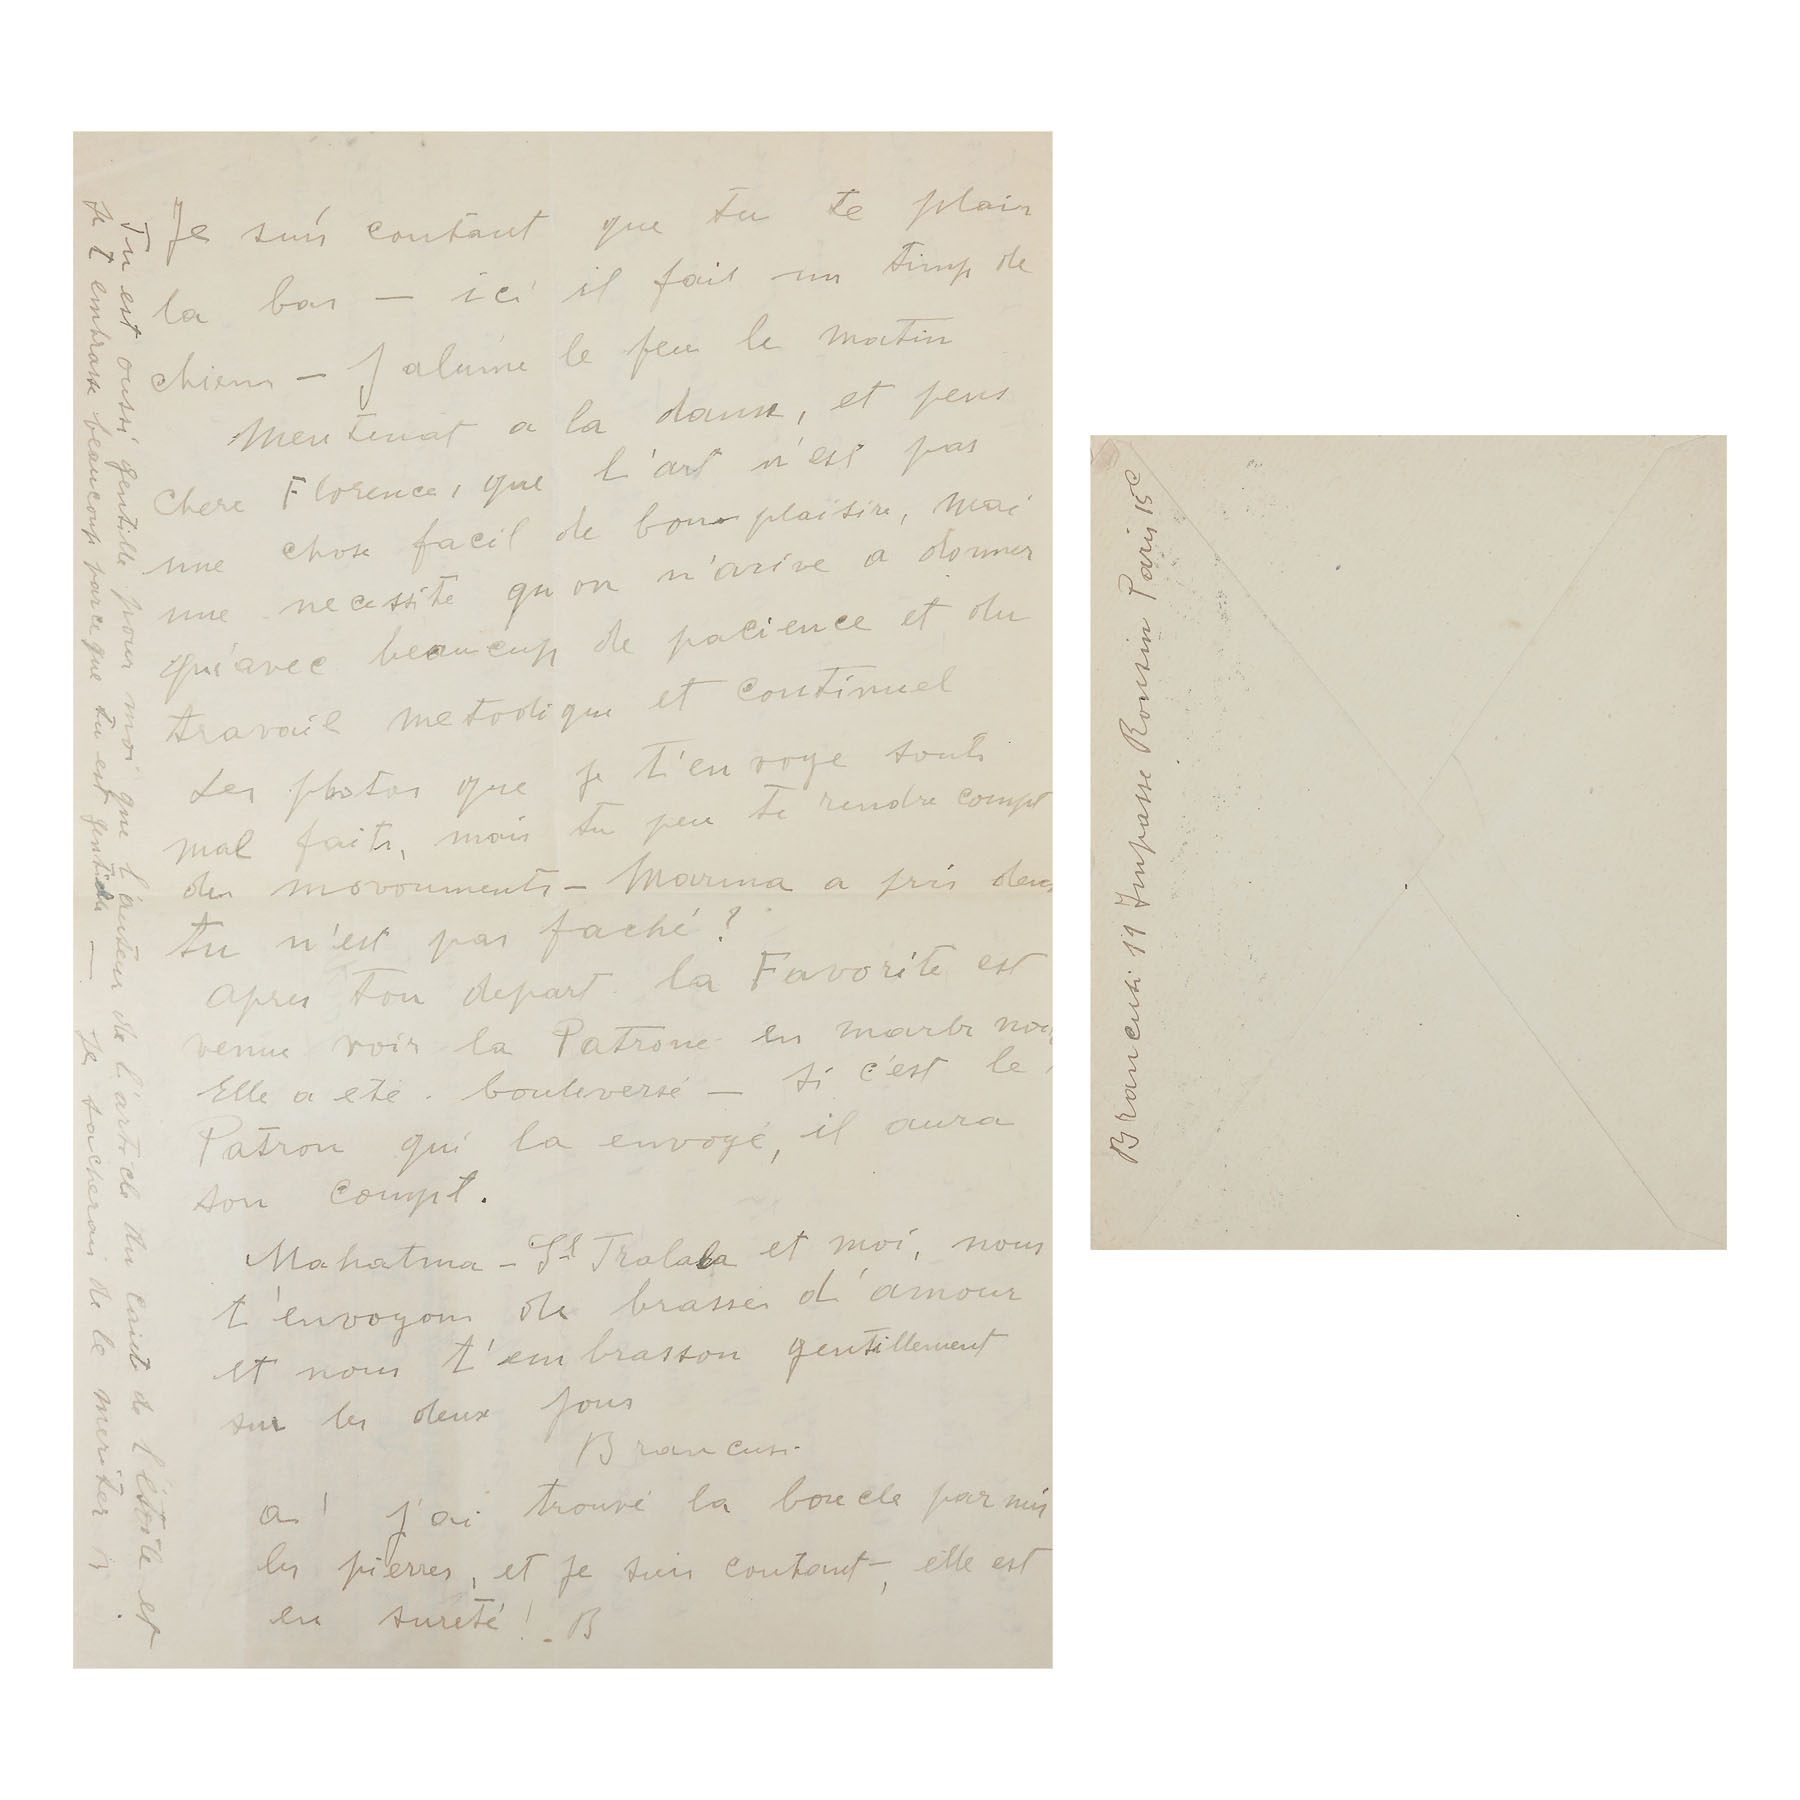 Je suis contant que tu te plais
la bas — ici il fait un timp de
chiens — J alume le feu le matin
Mentenat a la danse, et pens
chere Florence, que l'art n'est pas
une chose facil de bon plaisire, mai
une necessité qu on n'arive a donner
qu'avec beaucup de pacience et du
travail metodique et continuel
Les photos que je t'en voye sont
mal faits, mais tu peu te rendre compt
des movouments — Marina a pris deux
tu n'est pas faché?
Apres ton depart la Favorite est
venue voir la Patrone en marbr noir
Elle a eté bouleversé — si c'est le
Patron qui la envoyé, il aura
son compt.
Mahatma — St Tralala et moi, nous
t'envoyons de brasses d'amour
et nous t'em brasson gentillement
sur les deux jous
Brancusi
a! j'ai trouvé la boucle par mis
les pierres, et je suis contant —, elle est
en sureté! — B
Tu est oussi gentille pour moi que l'auteur de l'article du caiut de l'étoile et
je t embrasse beaucoup parce que tu est gentille — je tacherais de le meriter B
Brancusi 11 Impasse Ronsin Paris 15e